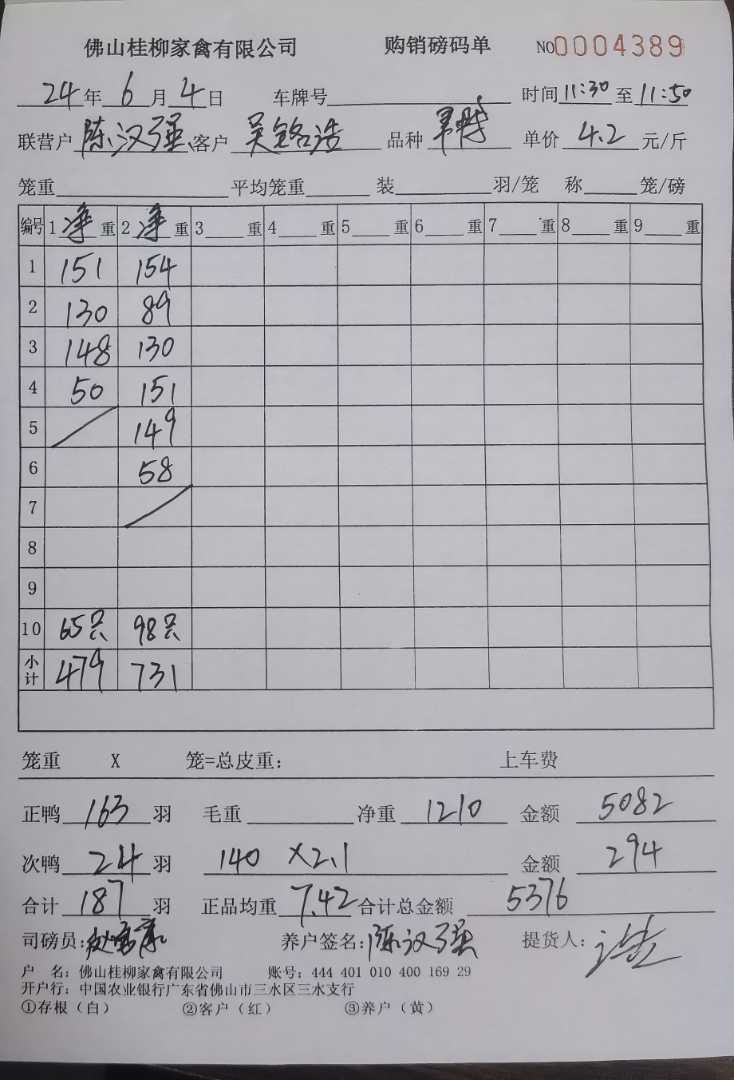 佛山桂柳家禽有限公司 购销磅码单 NO0004389
24年 6月 4日 车牌号 时间 11:30 至 11:50
联营户 陈汉强 客户 吴铭浩 品种 单价 4.2 元/斤
笼重 平均笼重 装 羽/笼 称 笼/磅
编号 1 净 重 2 净 重 3 重 4 重 5 重 6 重 7 重 8 重 9 重
1 151 154
2 130 89
3 148 130
4 50 151
5 149
6 58
7
8
9
10 65只 98只
小计 479 731
笼重 X 笼=总皮重: 上车费
正鸭 163 羽 毛重 净重 1210 金额 5082
次鸭 24 羽 140 X2.1 金额 294
合计 187 羽 正品均重 7.42 合计总金额 5376
司磅员: 养户签名:陈汉强 提货人:
户 名: 佛山桂柳家禽有限公司 账号: 444 401 010 400 169 29
开户行: 中国农业银行广东省佛山市三水区三水支行
①存根(白) ②客户(红) ③养户(黄)